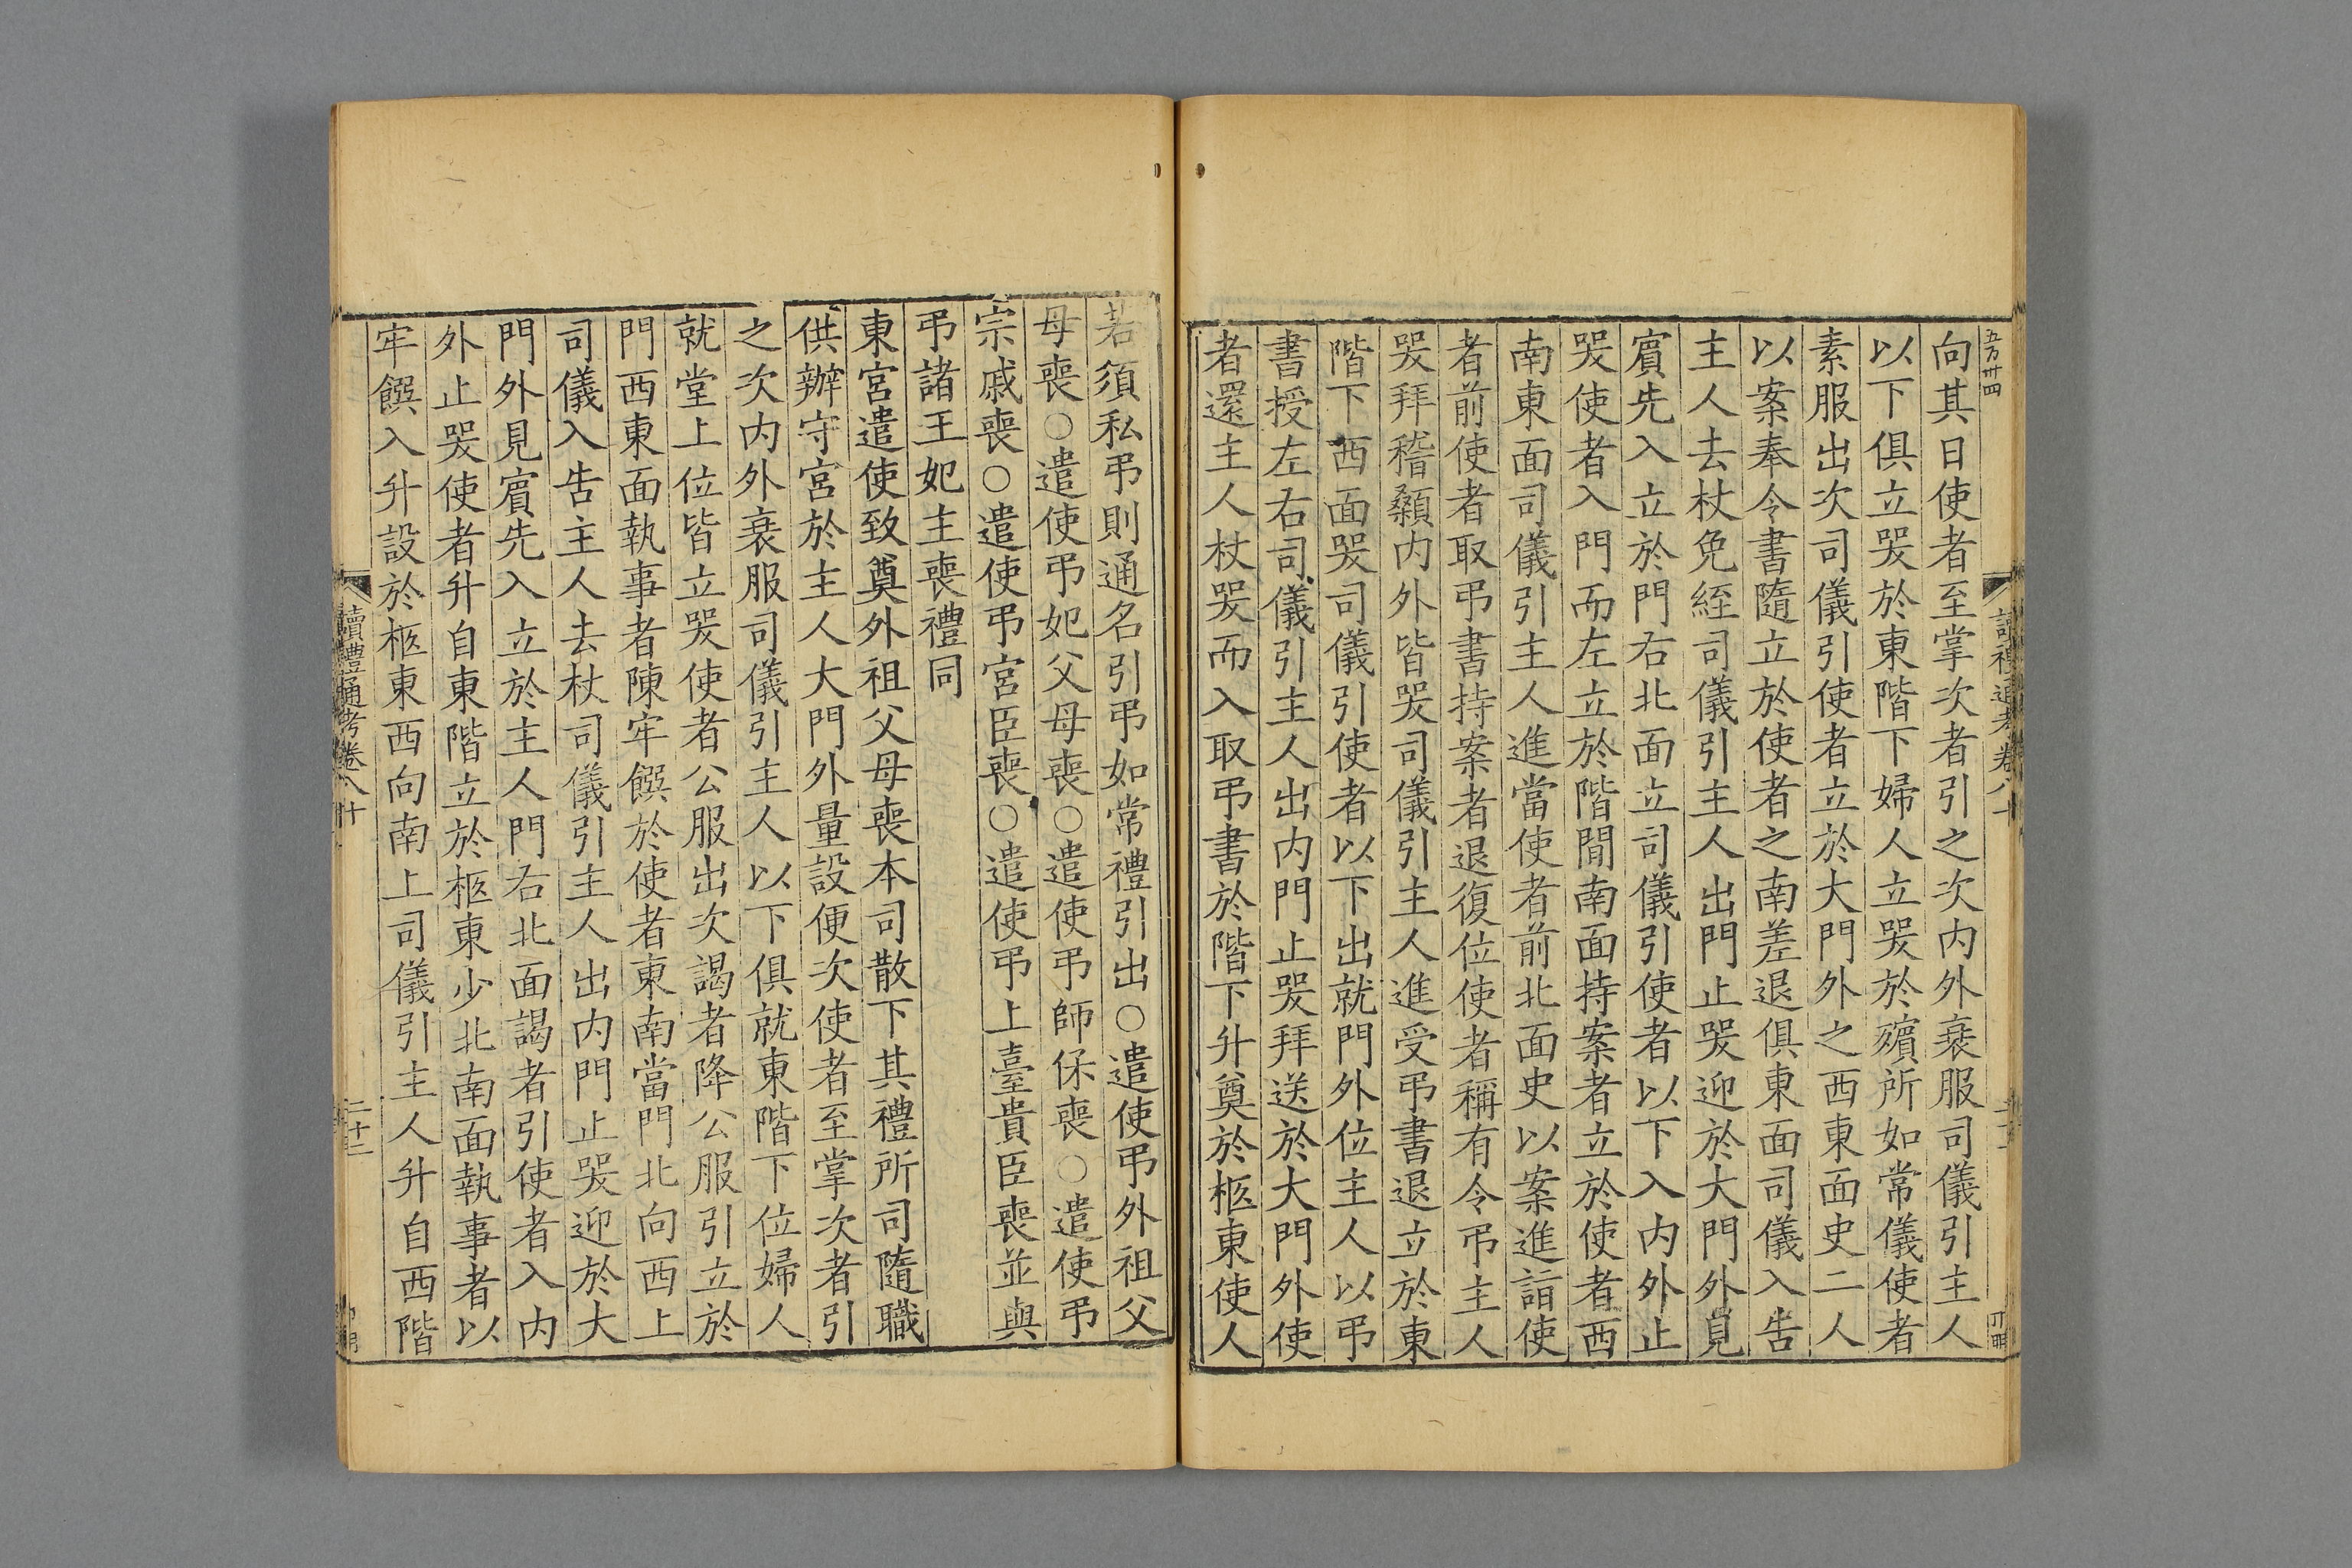 五百卅四
讀禮通考卷八十
向其日使者至掌次者引之次内外衰服司儀引主人
以下俱立哭於東階下婦人立哭於殯所如常儀使者
素服出次司儀引使者立於大門外之西東面史二人
以案奉令書隨立於使者之南差退俱東面司儀入告
主人去杖免絰司儀引主人出門止哭迎於大門外見
賔先入立於門右北面立司儀引使者以下入内外止
哭使者入門而左立於階間南面持案者立於使者西
南東面司儀引主人進當使者前北面史以案進詣使
者前使者取弔書持案者退復位使者稱有令弔主人
哭拜稽顙内外皆哭司儀引主人進受弔書退立於東
階下西面哭司儀引使者以下出就門外位主人以弔
書授左右司儀引主人出内門止哭拜送於大門外使
者還主人杖哭而入取弔書於階下升奠於柩東使人
若須私弔則通名引弔如常禮引出○遣使弔外祖父
母喪○遣使弔妃父母喪○遣使弔師保喪○遣使弔
宗戚喪○遣使弔宮臣喪○遣使弔上臺貴臣喪並與
弔諸王妃主喪禮同
東宮遣使致奠外祖父母喪本司散下其禮所司隨職
供辦守宮於主人大門外量設便次使者至掌次者引
之次内外衰服司儀引主人以下俱就東階下位婦人
就堂上位皆立哭使者公服出次謁者降公服引立於
門西東面執事者陳牢饌於使者東南當門北向西上
司儀入告主人去杖司儀引主人出内門止哭迎於大
門外見賔先入立於主人門右北面謁者引使者入内
外止哭使者升自東階立於柩東少北南面執事者以
牢饌入升設於柩東西向南上司儀引主人升自西階
讀禮通考卷八十
二十二